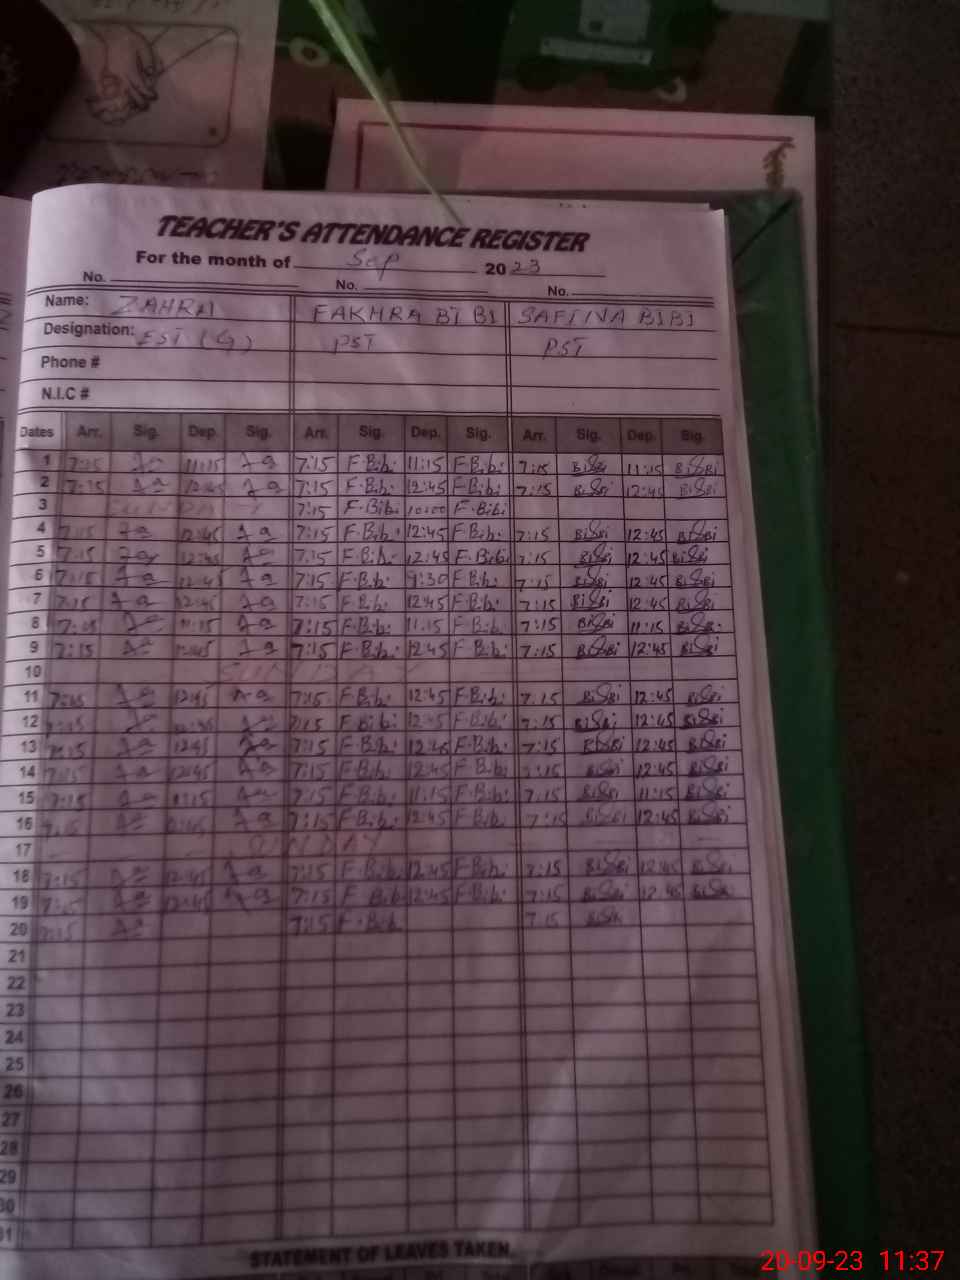 TEACHER'S ATTENDANCE REGISTER
For the month of Sep 2023
No. No. No.
Name: ZAHRA FAKHRA BI BI SAFINA BIBI
Designation: EST (G) PST PST
Phone #
N.I.C #
Dates Arr. Sig. Dep. Sig. Arr. Sig. Dep. Sig. Arr. Sig. Dep. Sig.
1 7:15 11:15 7:15 F.Bibi 11:15 F.Bibi 7:15 BiBi 11:15 BiBi
2 7:15 12:45 7:15 F.Bibi 12:45 F.Bibi 7:15 BiBi 12:45 BiBi
3 SUNDAY 7:15 F.Bibi 10:00 F.Bibi
4 7:15 12:45 7:15 F.Bibi 12:45 F.Bibi 7:15 BiBi 12:45 BiBi
5 7:15 12:45 7:15 F.Bibi 12:45 F.Bibi 7:15 BiBi 12:45 BiBi
6 7:15 12:45 7:15 F.Bibi 9:30 F.Bibi 7:15 BiBi 12:45 BiBi
7 7:15 12:45 7:15 F.Bibi 12:45 F.Bibi 7:15 BiBi 12:45 BiBi
8 7:15 11:15 7:15 F.Bibi 11:15 F.Bibi 7:15 BiBi 11:15 BiBi
9 7:15 12:45 7:15 F.Bibi 12:45 F.Bibi 7:15 BiBi 12:45 BiBi
10 SUNDAY
11 7:15 12:45 7:15 F.Bibi 12:45 F.Bibi 7:15 BiBi 12:45 BiBi
12 7:15 7:15 F.Bibi 12:45 F.Bibi 7:15 BiBi 12:45 BiBi
13 7:15 12:45 7:15 F.Bibi 12:45 F.Bibi 7:15 BiBi 12:45 BiBi
14 7:15 12:45 7:15 F.Bibi 12:45 F.Bibi 7:15 BiBi 12:45 BiBi
15 7:15 11:15 7:15 F.Bibi 11:15 F.Bibi 7:15 BiBi 11:15 BiBi
16 7:15 12:45 7:15 F.Bibi 12:45 F.Bibi 7:15 BiBi 12:45 BiBi
17 SUNDAY
18 7:15 12:45 7:15 F.Bibi 12:45 F.Bibi 7:15 BiBi 12:45 BiBi
19 7:15 12:45 7:15 F.Bibi 12:45 F.Bibi 7:15 BiBi 12:45 BiBi
20 7:15 7:15 F.Bibi 7:15 BiBi
21
22
23
24
25
26
27
28
29
30
31
STATEMENT OF LEAVES TAKEN.
20-09-23 11:37